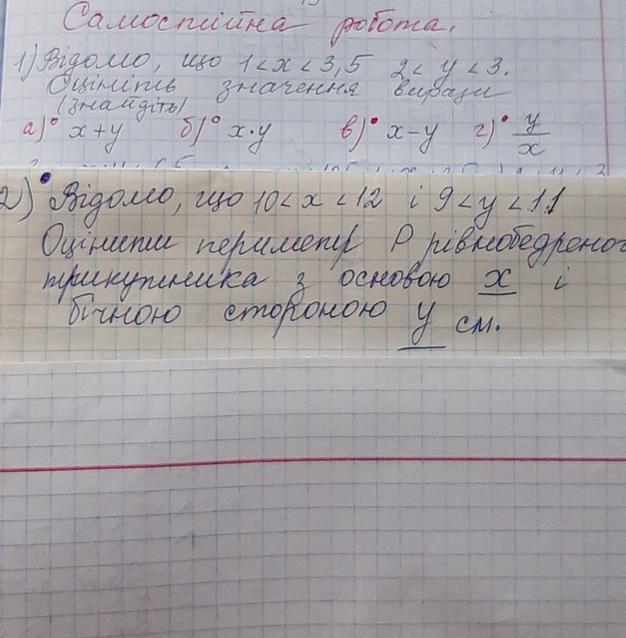 Самостійна робота.
1) Відомо, що 1 < x < 3,5 2 < y < 3.
Оцініть значення виразу
(знайдіть)
а)° x+y б)° x·y в)• x−y г)• y/x
2)• Відомо, що 10 < x < 12 і 9 < y < 11
Оцініти периметр P рівнобедреног
трикутника з основою x і
бічною стороною y см.